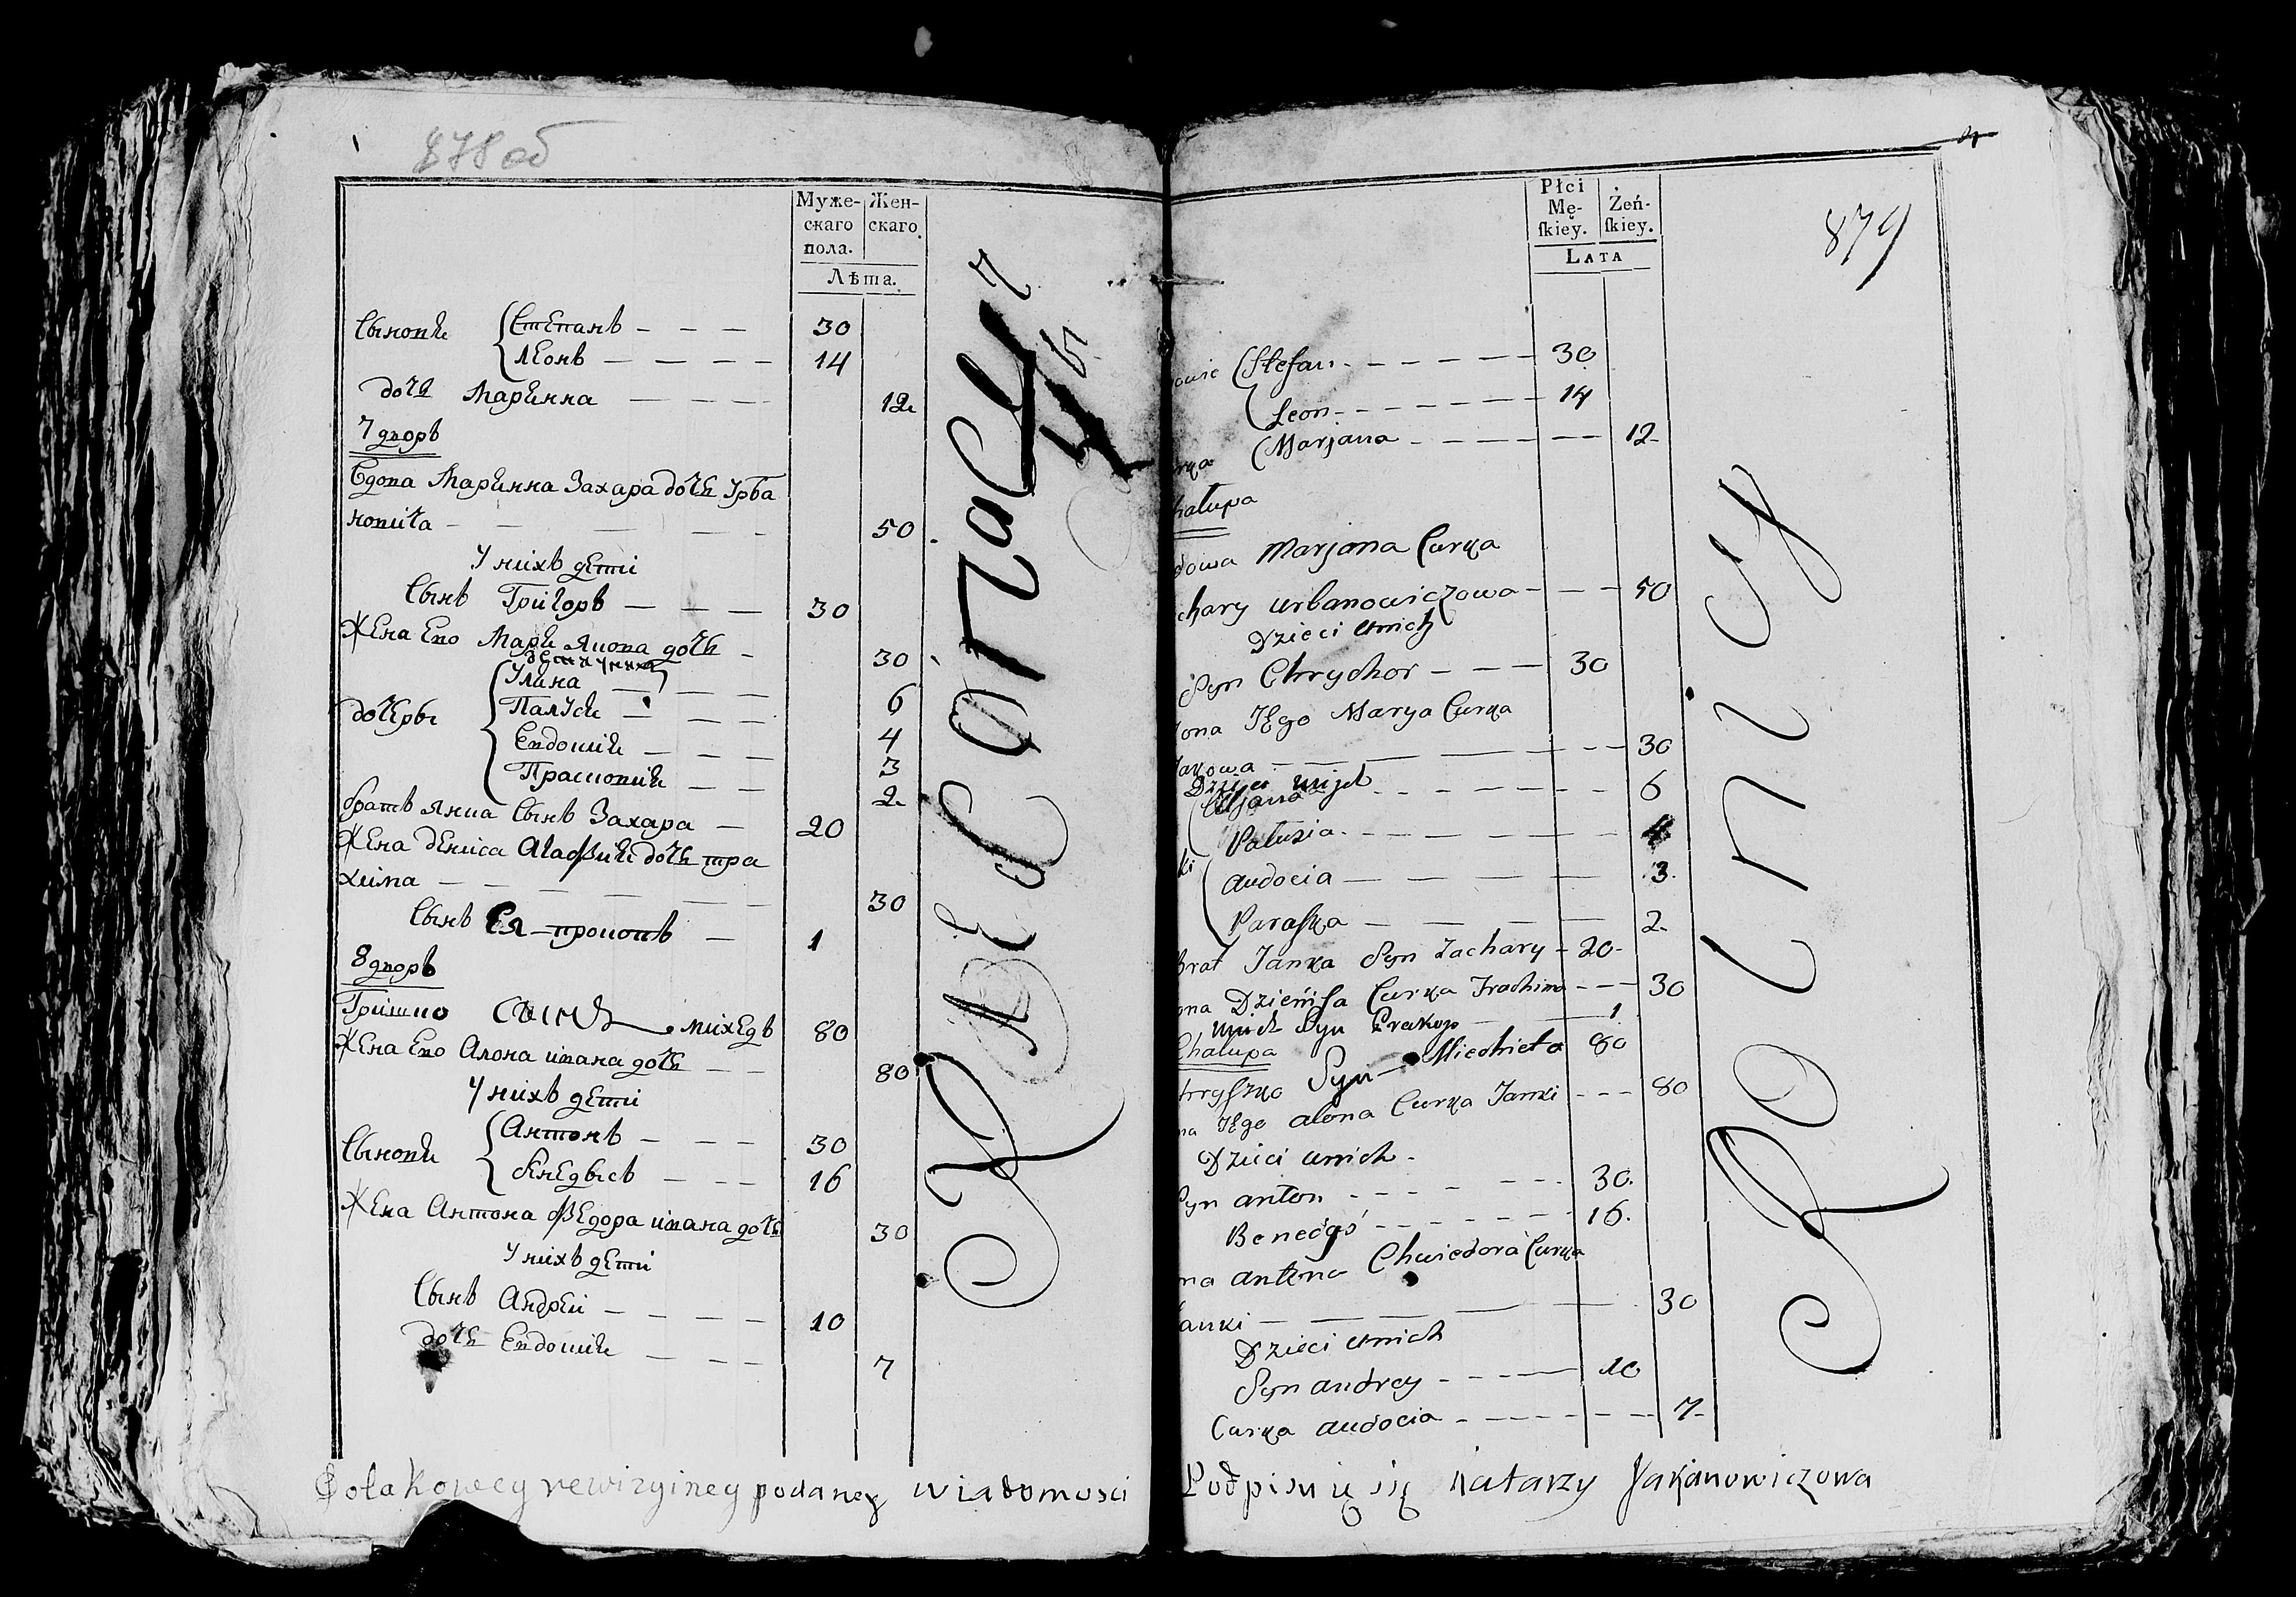 878 об
Муже-
скаго
пола.
Жен-
скаго.
Лѣта.
Сынови { Степанъ - - - 30
Леонъ - - - - 14
дочь Маринна - - - - 12
7 дворъ
Вдова Маринна Захара дочь Урба
новича - - - - 50
У нихъ дети
Сынъ Григоръ - - - 30
Жена Ево Мари Янова дочь - 30
дети у нихъ
дочеры { Улина - - - 6
Палуси - - - 4
Евдокии - - - 3
Прасковии - - 2
братъ Янка Сынъ Захара - 20
Жена дениса Агафии дочь тра
хима - - - - 30
Сынъ Ея прокопъ - 1
8 дворъ
Гришко Сынъ михедъ 80
Жена Ево Алона ивана дочь - - 80
У нихъ дети
Сынови { Антонъ - - - 30
бенедысь - - - 16
Жена Антона Федора ивана дочь 30
У нихъ дети
Сынъ Андрей - - - - 10
дочь Евдокии - - - 7
Płci
Mę-
ſkiey.
Żeń-
ſkiey.
LATA
879
owie (Stefan - - - - - 30
Leon - - - - - - 14
rka (Marjana - - - - - - 12
hałupa
dowa Marjana Curka
chary urbanowiczowa - - - 50
Dzieci unich
Syn Chrychor - - - 30
ona Iego Marya Curka
Jakowa - - - - - 30
Dzieci unich
Uljana - - - - - - 6
Pałusia - - - - - 4
ki audocia - - - - - 3
Paraſka - - - - - 2
Brat Janka Syn Zachary - 20
ona Dzieniſa Curka Trachima - - - 30
unich Syn Prakop - 1
Chałupa
hryſzko Syn Miechieta 80
na Iego alona Curka Janki - - - 80
Dzieci unich -
Syn anton - - - - - 30
Benedyś - - - - - 16
na antona Chwiedora Curka
anki - - - - - 30
Dzieci unich
Syn andrey - - - - - 10
Curka audocia - - - - - - 7
Rolnicy
Do takowey rewizyiney podaney wiadomosci Podpisuię się Katarzy Jakanowiczowa